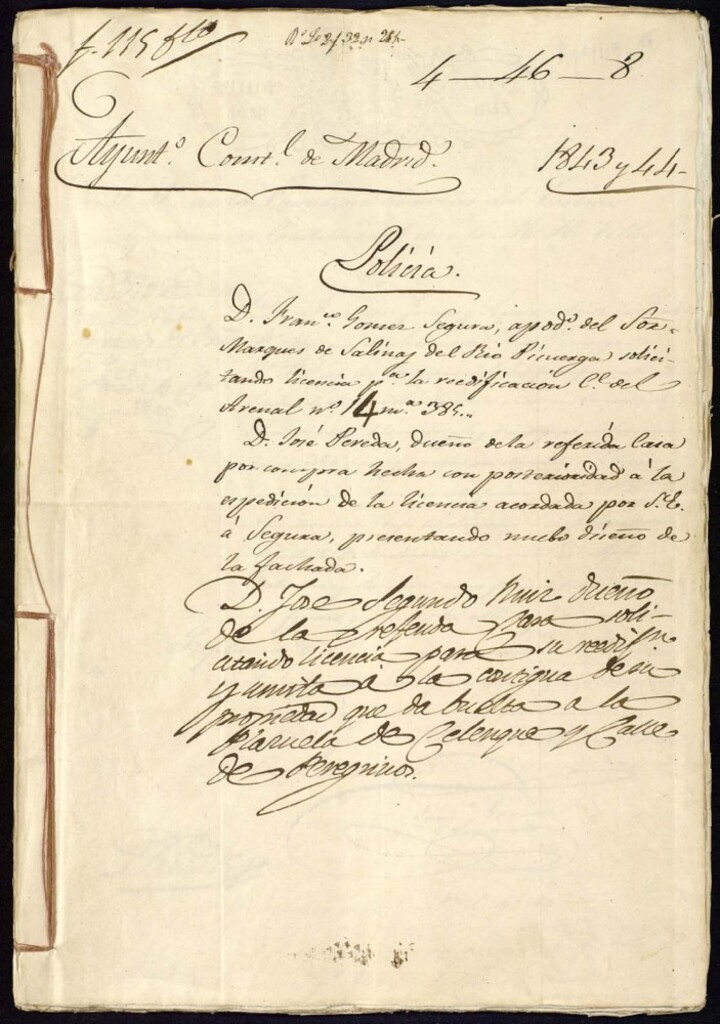 f. 115 fto
4-46-8
Ayunt.º Const.l de Madrid.
1843 y 44-
Policía.
D. Fran.co Gomez Segura, apod.º del Sor.
Marques de Salinas del Rio Picuerga solici-
tando licencia p.a la reedificacion C.e del
Arenal nº 14 m.a 385..
D. José Pereda, dueño de la referida Casa
por compra hecha con posterioridad à la
espedición de la licencia acordada por S.E.
à Segura, presentando nuebo diseño de
la fachada.
D. Jose Segundo Ruiz dueño
de la referida Casa soli-
citando licencia para su reedif.on
y unirla a la contigua de su
propiedad que da buelta a la
Plazuela de Celenque y Calle
de Peregrinos.